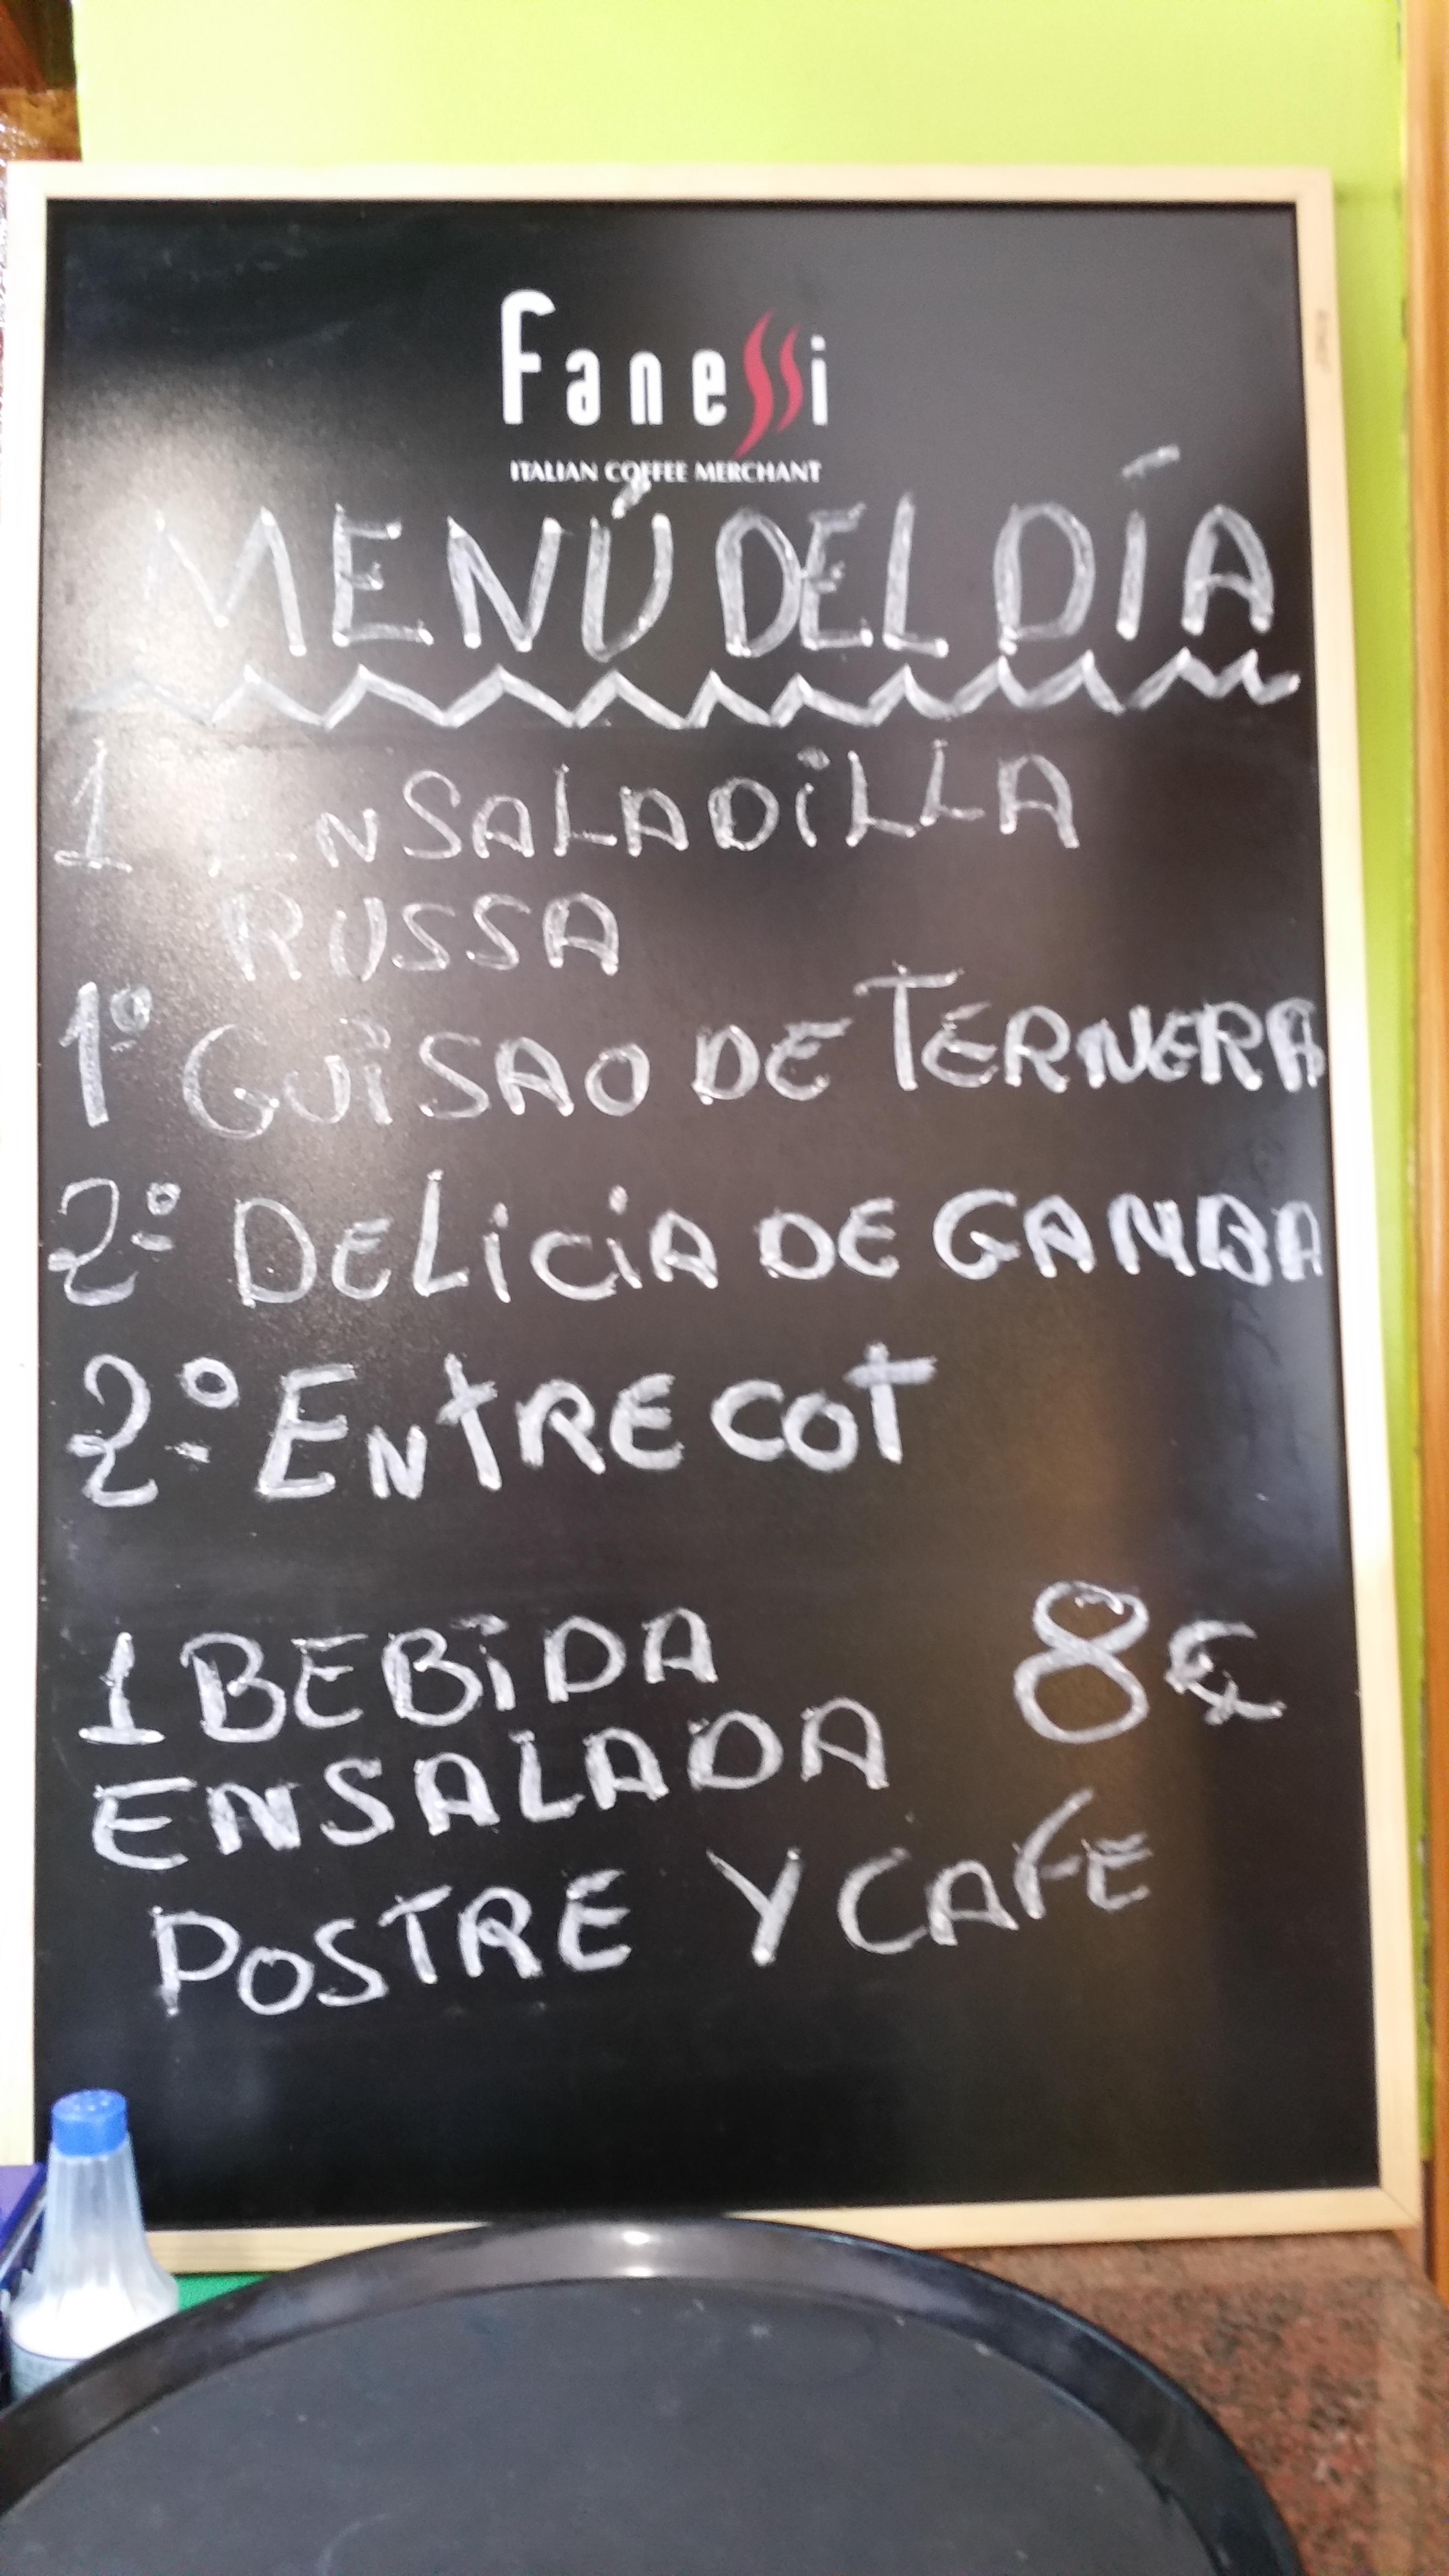 Fanessi
ITALIAN COFFEE MERCHANT
MENÚ DEL DÍA
1 ENSALADiLLA
RUSSA
1º GUiSAO DE TERNERA
2º DELiCiA DE GAMBA
2º ENTRECOT
1 BEBiDA 8€
ENSALADA
POSTRE Y CAFE